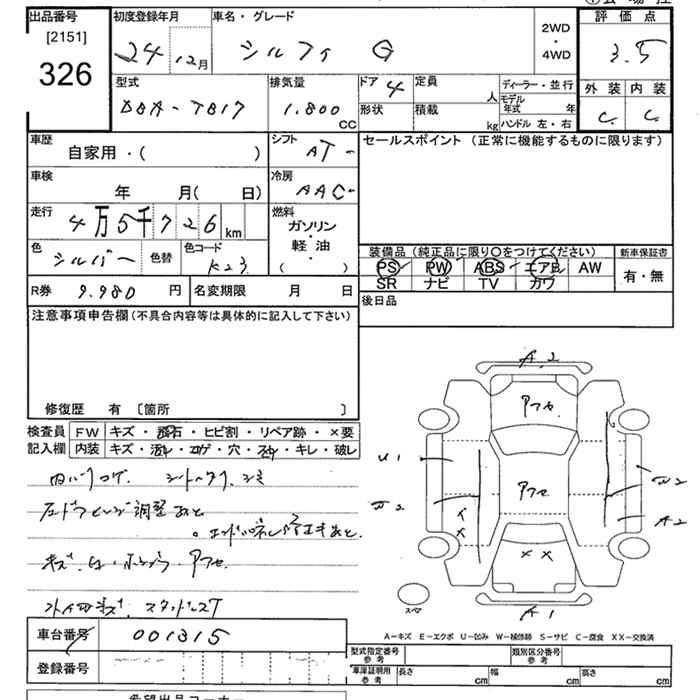 出品番号 初度登録年月 車名・グレード 2WD ・ 4WD 評価点
[2151]
326 24 12月 シルフィ G 3.5
型式 排気量 ドア 4 定員 人 ディーラー・並行 外装 内装
DBA-TB17 1.800 CC 形状 積載 kg モデル年式 年 ハンドル 左・右 C C
車歴 シフト セールスポイント (正常に機能するものに限ります)
自家用・( ) AT
車検 冷房
年 月( 日) AAC
走行 燃料
4万5千726 km ガソリン・軽油・( )
色 シルバー 色替 色コード K23 装備品 (純正品に限り○をつけてください) 新車保証書
PS PW ABS エアB AW 有・無
SR ナビ TV カワ
R券 9.980 円 名変期限 月 日 後日品
注意事項申告欄 (不具合内容等は具体的に記入して下さい)
修復歴 有 〔箇所 〕
検査員 FW キズ・飛石・ヒビ割・リペア跡・×要
記入欄 内装 キズ・汚れ・コゲ・穴・スレ・キレ・破レ
調整あと
キズ
A2
アフセ
U1
アフセ
A2
××
スペア
A1
A−キズ E−エクボ U−凹み W−補修跡 S−サビ C−腐食 XX−交換済
車台番号 001315
登録番号
型式指定番号 参考 類別区分番号 参考
車庫証明用 参考 長さ cm 幅 cm 高さ cm
希望出品コーナー